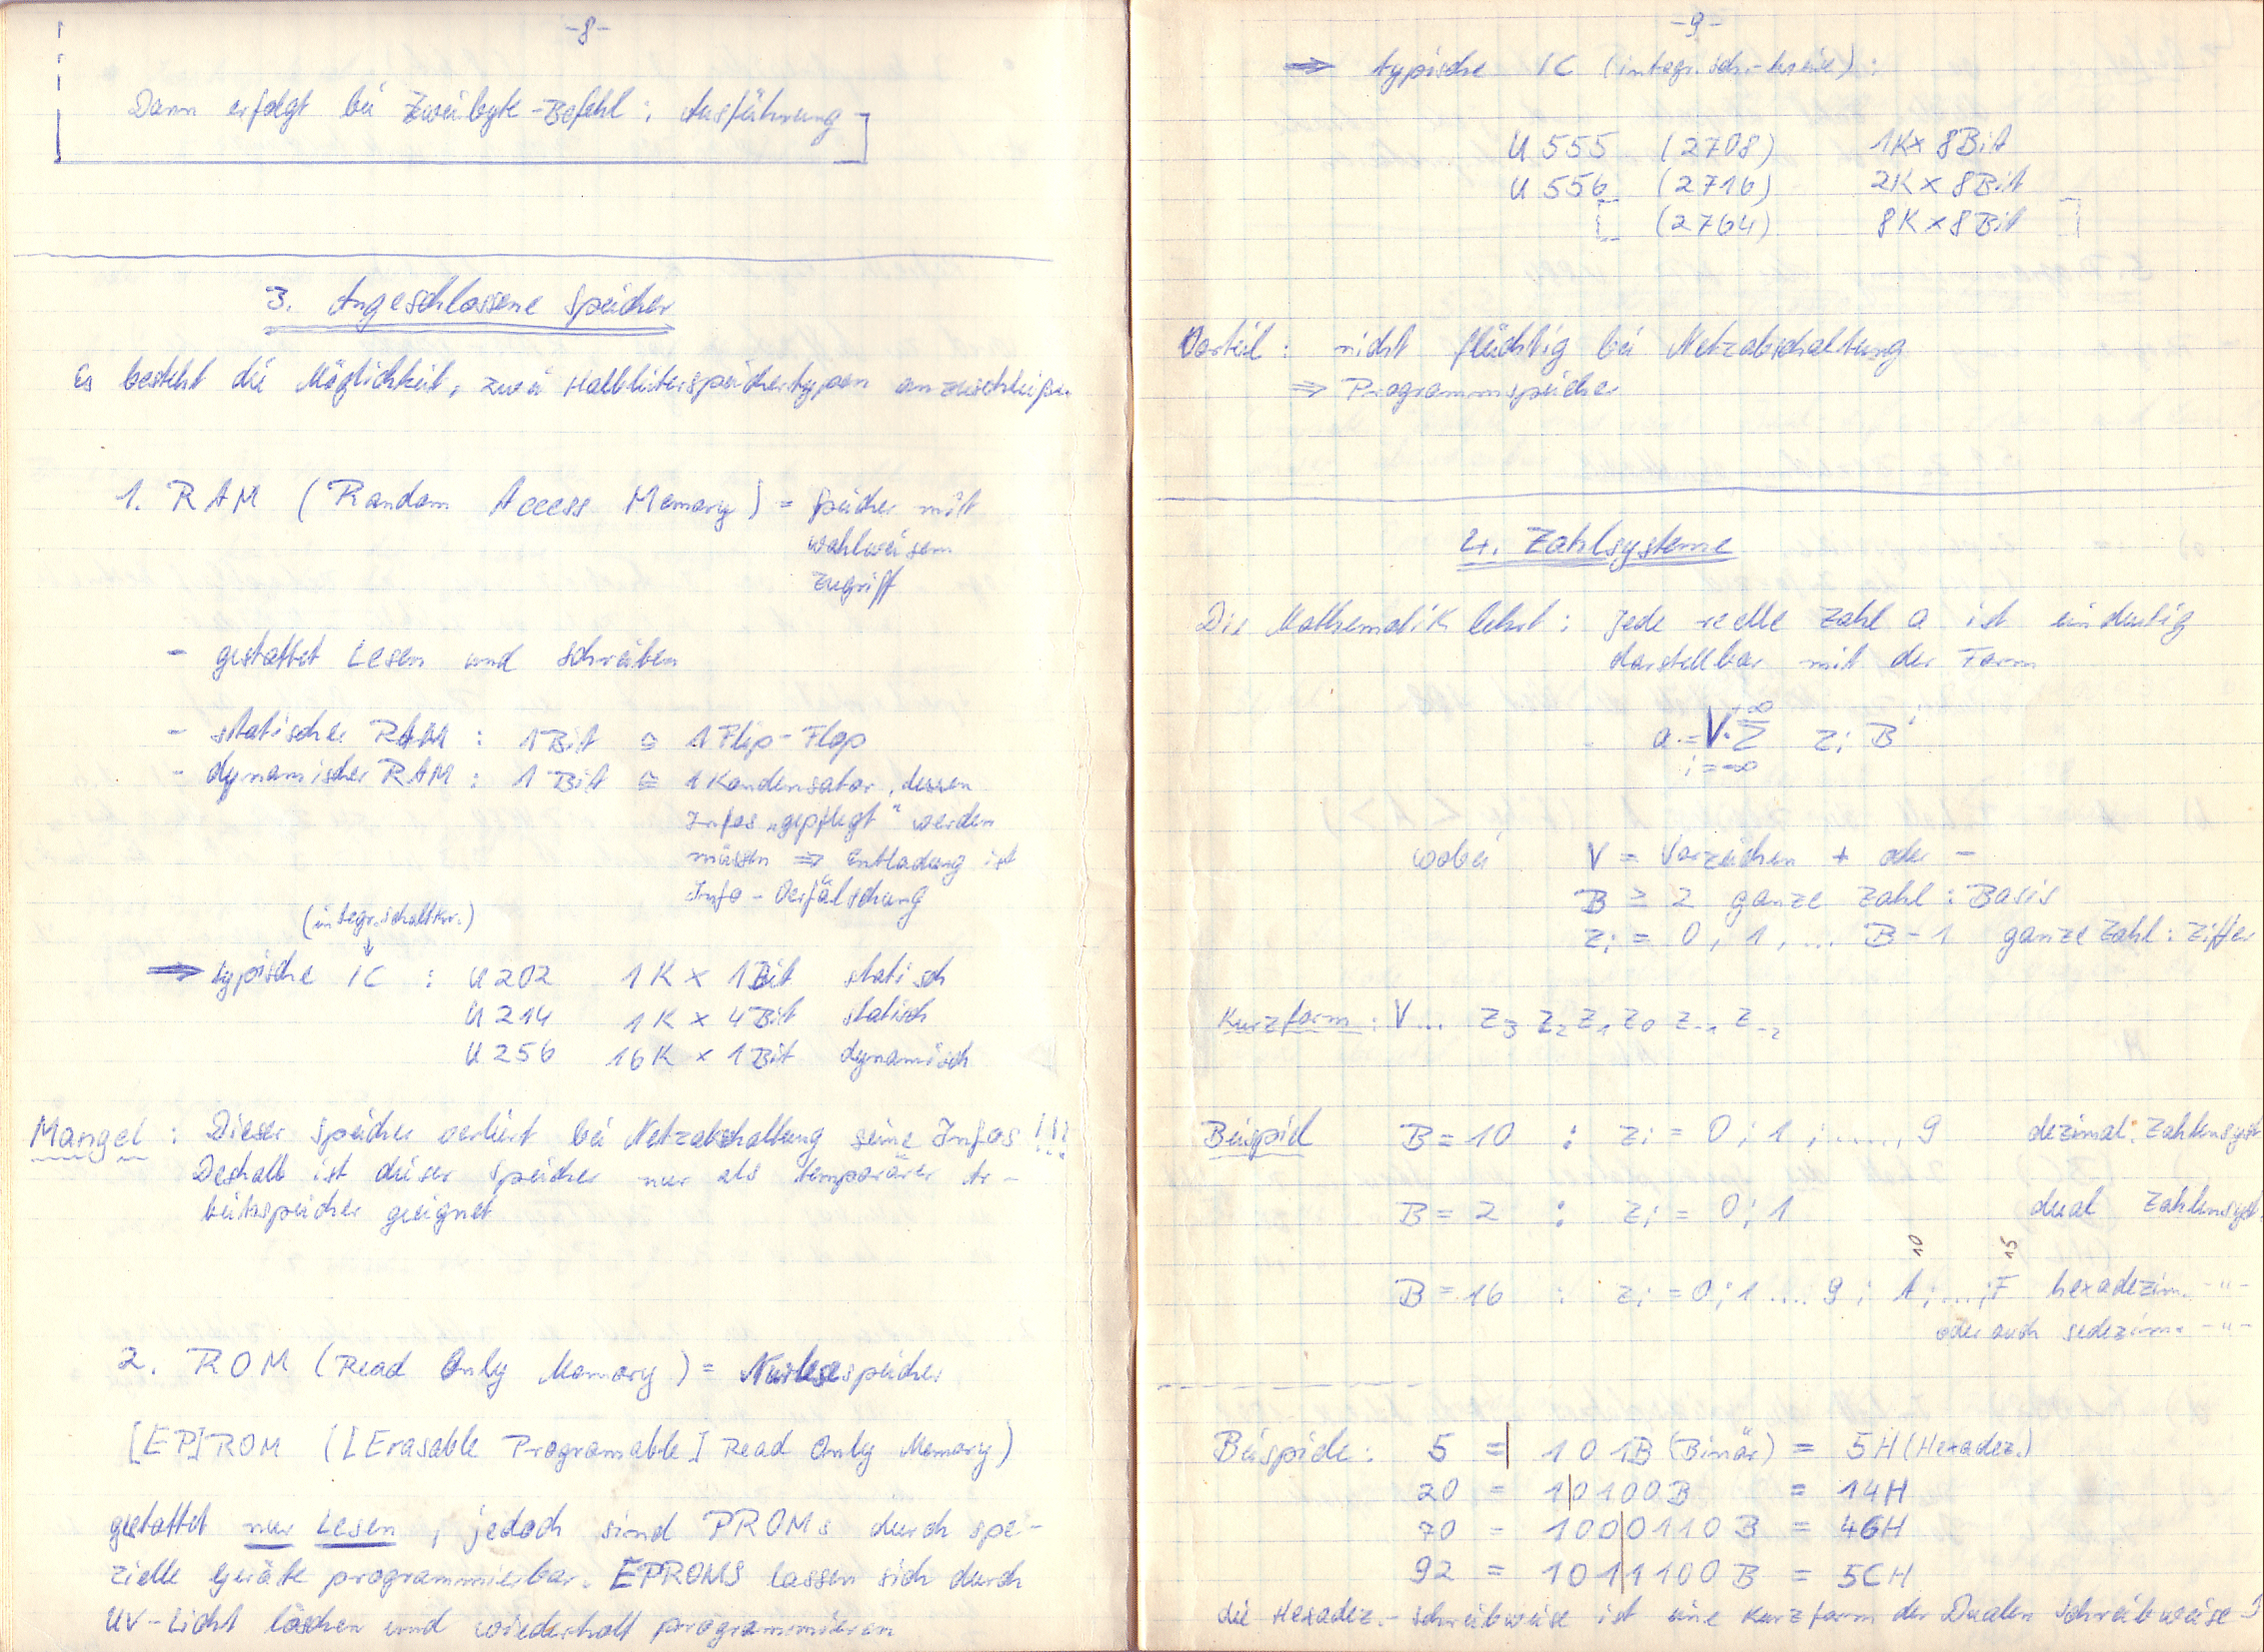 -8-
Dann erfolgt bei Zweibyte-Befehl: Ausführung
3. Angeschlossene Speicher
Es besteht die Möglichkeit, zwei Halbleiterspeichertypen anzuschließen.
1. RAM (Random Access Memory) = Speicher mit
wahlweisem
Zugriff
- gestattet Lesen und Schreiben
- statischer RAM : 1 Bit ≙ 1 Flip-Flop
- dynamischer RAM : 1 Bit ≙ 1 Kondensator, dessen
Infos „gepflegt" werden
müssen ⇒ Entladung ist
Info-Verfälschung
(integr. Schaltkr.)
⇒ typische IC : U 202 1K x 1Bit statisch
U 214 1K x 4Bit statisch
U 256 16K x 1Bit dynamisch
Mangel : Dieser Speicher verliert bei Netzabschaltung seine Infos !!!
Deshalb ist dieser Speicher nur als temporärer Ar-
beitsspeicher geeignet
2. ROM (Read Only Memory) = Nurlesespeicher
[EP]ROM ([Erasable Programable] Read Only Memory)
gestattet nur Lesen, jedoch sind PROMs durch spe-
zielle Geräte programmierbar. EPROMS lassen sich durch
UV-Licht löschen und wiederholt programmieren
-9-
⇒ typische IC (integr. Sch.-kreise) :
U 555 (2708) 1K x 8Bit
U 556 (2716) 2K x 8Bit
[ (2764) 8K x 8Bit ]
Vorteil : nicht flüchtig bei Netzabschaltung
⇒ Programmspeicher
4. Zahlsysteme
Die Mathematik lehrt : Jede reelle Zahl a ist eindeutig
darstellbar mit der Form
+∞
a = V·Σ zi B^i
i=-∞
wobei V = Vorzeichen + oder -
B ≥ 2 ganze Zahl : Basis
zi = 0, 1, ... B-1 ganze Zahl : Ziffer
Kurzform : V... z3 z2 z1 z0 z-1 z-2
Beispiel B = 10 : zi = 0; 1; ....; 9 dezimal. Zahlensyst
B = 2 : zi = 0; 1 dual Zahlensyst.
10 15
B = 16 : zi = 0; 1 .... 9; A; ...; F hexadezim. -"-
oder auch sedezim. -"-
Beispiele : 5 = 101B (Binär) = 5H (Hexadez.)
20 = 1|0100B = 14H
70 = 100|0110B = 46H
92 = 101|1100B = 5CH
die Hexadez.-Schreibweise ist eine Kurzform der Dualen Schreibweise